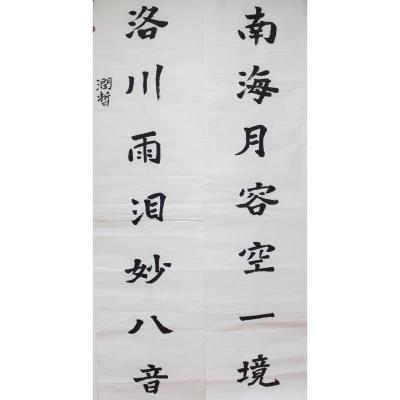 南海月容空一境
洛川雨泪妙八音
潤哲